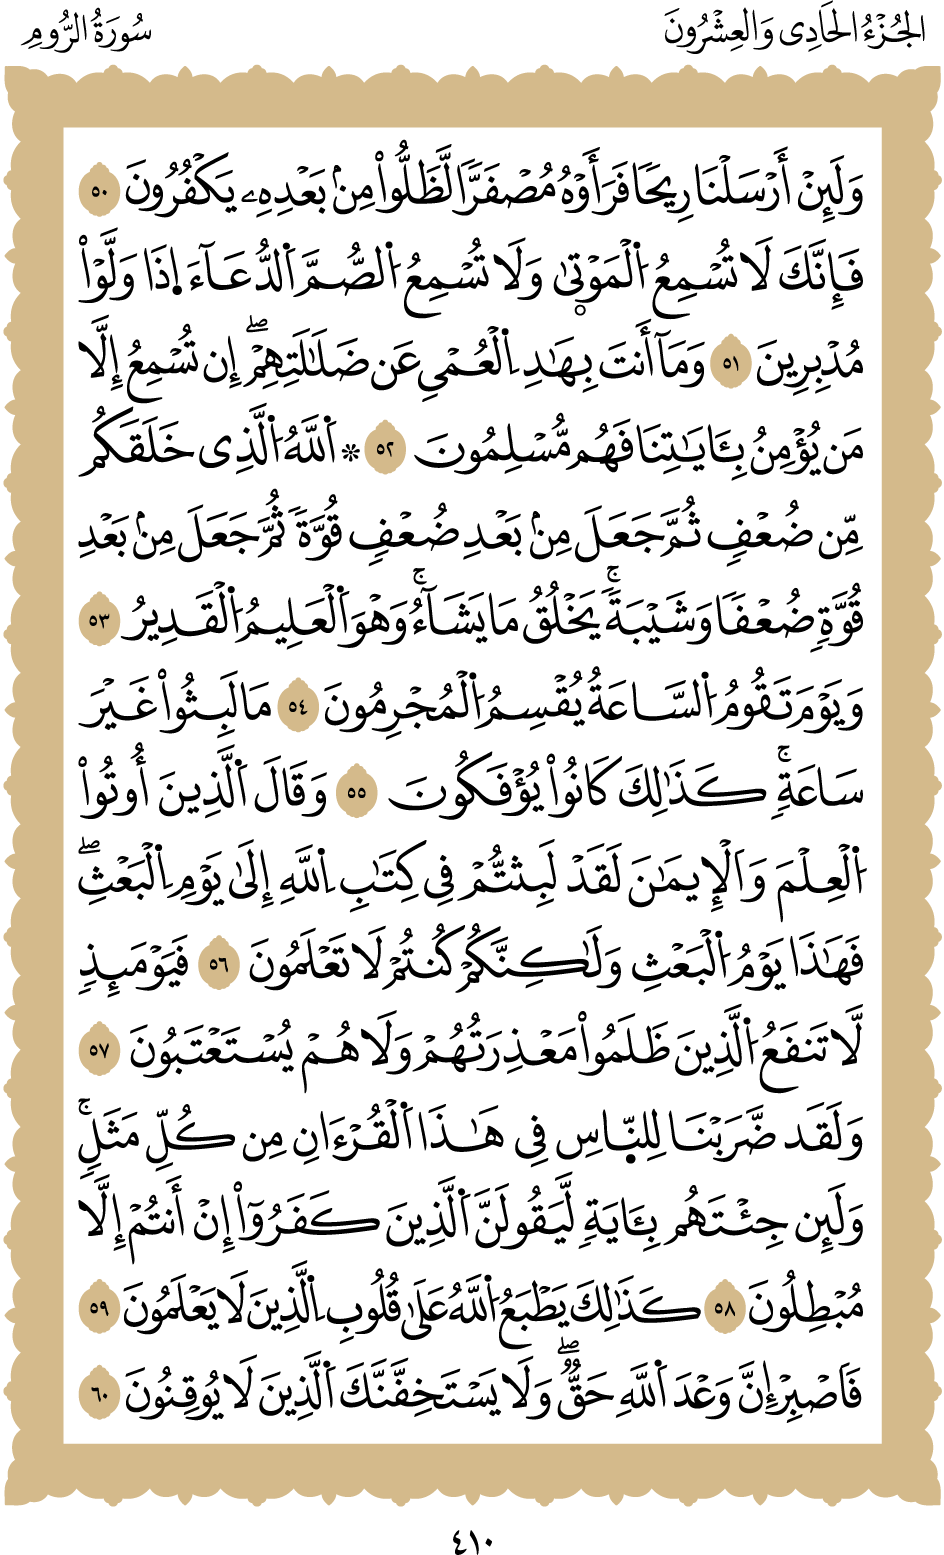 الجُزْءُ الحَادِى وَالعِشْرُونَ
سُورَةُ الرُّومِ
وَلَئِنۡ أَرۡسَلۡنَا رِيحٗا فَرَأَوۡهُ مُصۡفَرّٗا لَّظَلُّواْ مِنۢ بَعۡدِهِۦ يَكۡفُرُونَ ٥٠
فَإِنَّكَ لَا تُسۡمِعُ اُ۬لۡمَوۡتۭيٰ وَلَا تُسۡمِعُ اُ۬لصُّمَّ اَ۬لدُّعَآءَ ا۪ذَا وَلَّوۡاْ
مُدۡبِرِينَ ٥١ وَمَآ أَنتَ بِهَٰدِ اِ۬لۡعُمۡيِ عَن ضَلَٰلَتِهِمۡۖ إِن تُسۡمِعُ إِلَّا
مَن يُؤۡمِنُ بِـَٔايَٰتِنَا فَهُم مُّسۡلِمُونَ ٥٢ ۞ اَ۬للَّهُ اُ۬لَّذِى خَلَقَكُم
مِّن ضُعۡفٖ ثُمَّ جَعَلَ مِنۢ بَعۡدِ ضُعۡفٖ قُوَّةٗ ثُمَّ جَعَلَ مِنۢ بَعۡدِ
قُوَّةٖ ضُعۡفٗا وَشَيۡبَةٗۚ يَخۡلُقُ مَا يَشَآءُۚ وَهۡوَ اَ۬لۡعَلِيمُ اُ۬لۡقَدِيرُ ٥٣
وَيَوۡمَ تَقُومُ اُ۬لسَّاعَةُ يُقۡسِمُ اُ۬لۡمُجۡرِمُونَ ٥٤ مَا لَبِثُواْ غَيۡرَ
سَاعَةٖۚ كَذَٰلِكَ كَانُواْ يُؤۡفَكُونَ ٥٥ وَقَالَ اَ۬لَّذِينَ أُوتُواْ
اُ۬لۡعِلۡمَ وَاَلۡإِيمَٰنَ لَقَدۡ لَبِثتُّمۡ فِي كِتَٰبِ اِ۬للَّهِ إِلَىٰ يَوۡمِ اِ۬لۡبَعۡثِۖ
فَهَٰذَا يَوۡمُ اُ۬لۡبَعۡثِ وَلَٰكِنَّكُمۡ كُنتُمۡ لَا تَعۡلَمُونَ ٥٦ فَيَوۡمَئِذٖ
لَّا تَنفَعُ اُ۬لَّذِينَ ظَلَمُواْ مَعۡذِرَتُهُمۡ وَلَا هُمۡ يُسۡتَعۡتَبُونَ ٥٧
وَلَقَد ضَّرَبۡنَا لِلنّ۪اسِ فِي هَٰذَا اَ۬لۡقُرۡءَانِ مِن كُلِّ مَثَلٖۚ
وَلَئِن جِئۡتَهُم بِـَٔايَةٖ لَّيَقُولَنَّ اَ۬لَّذِينَ كَفَرُوٓاْ إِنۡ أَنتُمۡ إِلَّا
مُبۡطِلُونَ ٥٨ كَذَٰلِكَ يَطۡبَعُ اُ۬للَّهُ عَلَىٰ قُلُوبِ اِ۬لَّذِينَ لَا يَعۡلَمُونَ ٥٩
فَاَصۡبِرۡ إِنَّ وَعۡدَ اَ۬للَّهِ حَقّٞۖ وَلَا يَسۡتَخِفَّنَّكَ اَ۬لَّذِينَ لَا يُوقِنُونَ ٦٠
٤١٠